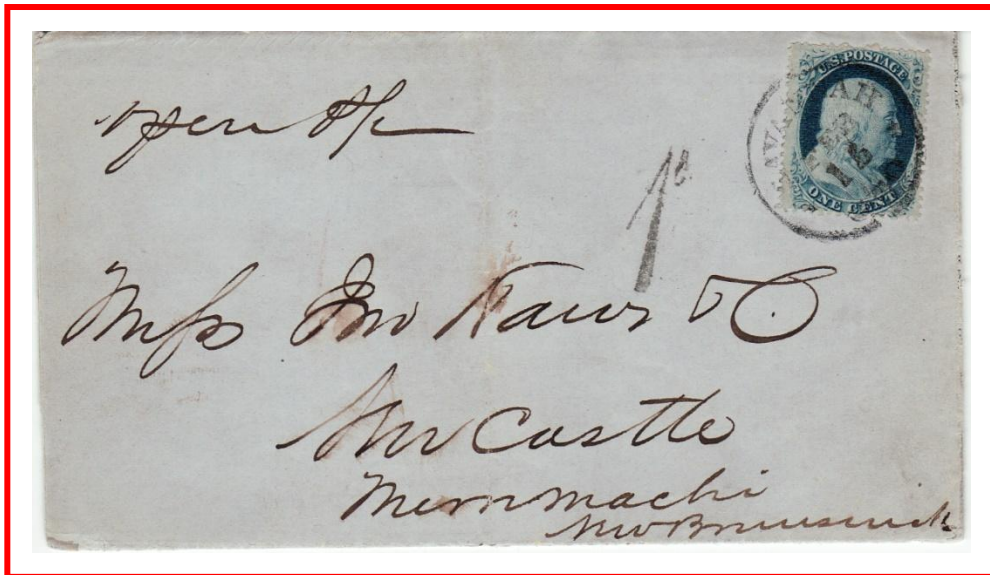 U.S. POSTAGE
ONE CENT
1d
Mess Jno Haws & C
New Castle
Merrimachi
New Brunswick